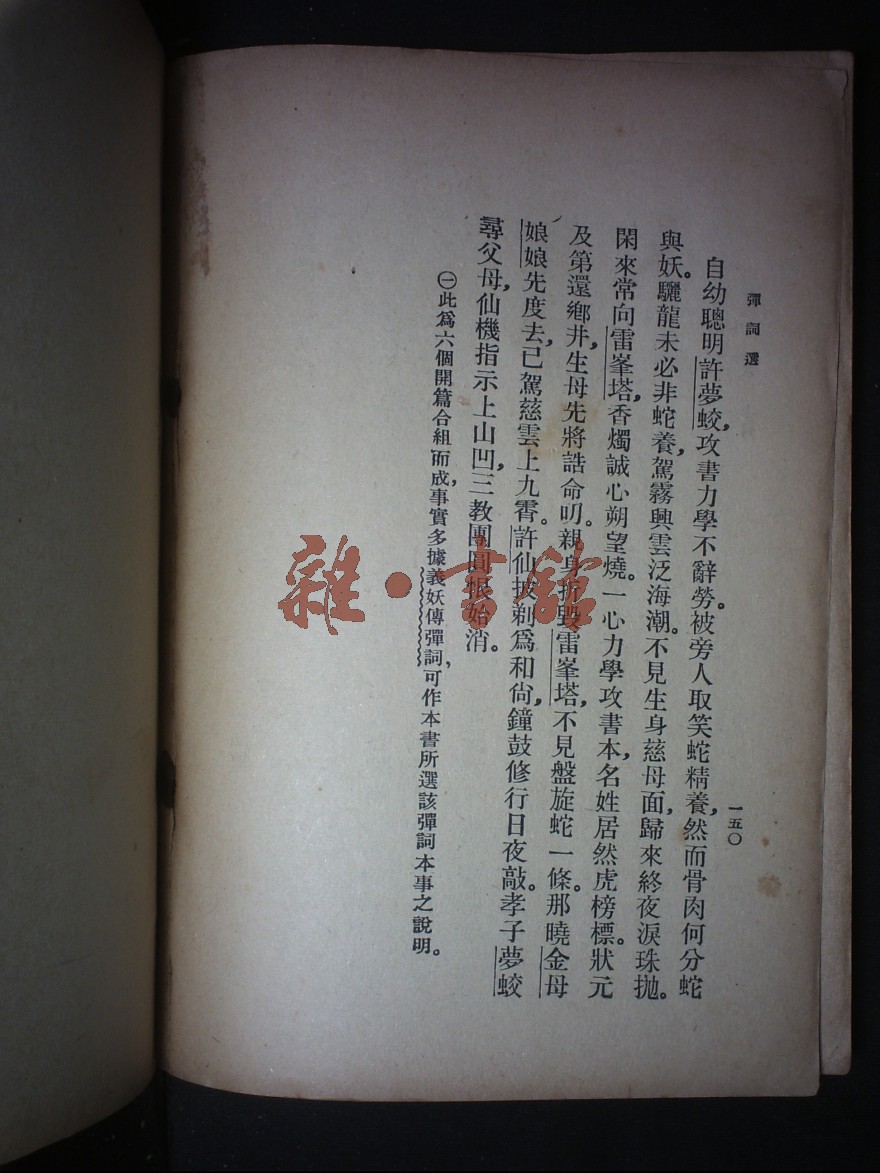 彈詞選
一五〇
自幼聰明許夢蛟,攻書力學不辭勞。被旁人取笑蛇精養,然而骨肉何分蛇
與妖。驪龍未必非蛇養,駕霧興雲泛海潮。不見生身慈母面,歸來終夜淚珠拋。
閑來常向雷峯塔,香燭誠心朔望燒。一心力學攻書本,名姓居然虎榜標。狀元
及第還鄉井,生母先將誥命叨。親身折毀雷峯塔,不見盤旋蛇一條。那曉金母
娘娘先度去,已駕慈雲上九霄。許仙披剃爲和尙,鐘鼓修行日夜敲。孝子夢蛟
尋父母,仙機指示上山凹,三教團圓恨始消。
㊀此爲六個開篇合組而成,事實多據義妖傳彈詞,可作本書所選該彈詞本事之說明。
雜·書館